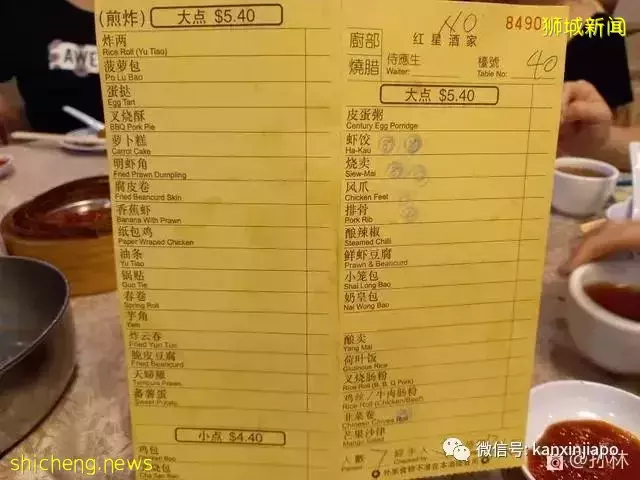 (煎炸) 大点 $5.40
炸两
Rice Roll (Yu Tiao)
菠萝包
Po Lu Bao
蛋挞
Egg Tart
叉烧酥
BBQ Pork Pie
萝卜糕
Carrot Cake
明虾角
Fried Prawn Dumpling
腐皮卷
Fried Beancurd Skin
香蕉虾
Banana With Prawn
纸包鸡
Paper Wraped Chicken
油条
Yu Tiao
锅贴
Guo Tie
春卷
Spring Roll
芋角
Yam
炸云吞
脆皮豆腐
Fried Beancurd
天婦罐
蕃薯蛋
Sweet Potato
小点 $4.40
鸡包
烧包
廚部
燒腊
红星酒家
8490
侍應生
Waiter:
檯號
Table No:
40
大点 $5.40
皮蛋粥
Century Egg Porridge
虾饺
Ha-Kau
烧卖
Siew-Mai
风爪
Chicken Feet
排骨
Pork Rib
酿辣椒
Steamed Chilli
鲜虾豆腐
Prawn & Beancurd
小笼包
Shai Long Bao
奶皇包
Nai Wong Bao
酿卖
Yang Mai
荷叶饭
Glutinous Rice
叉烧肠粉
鸡丝/牛肉肠粉
韭菜卷
芒果沙律
人數
7
經手人
狮城新闻
shicheng.news
微信号: kanxinjiapo
@孙林